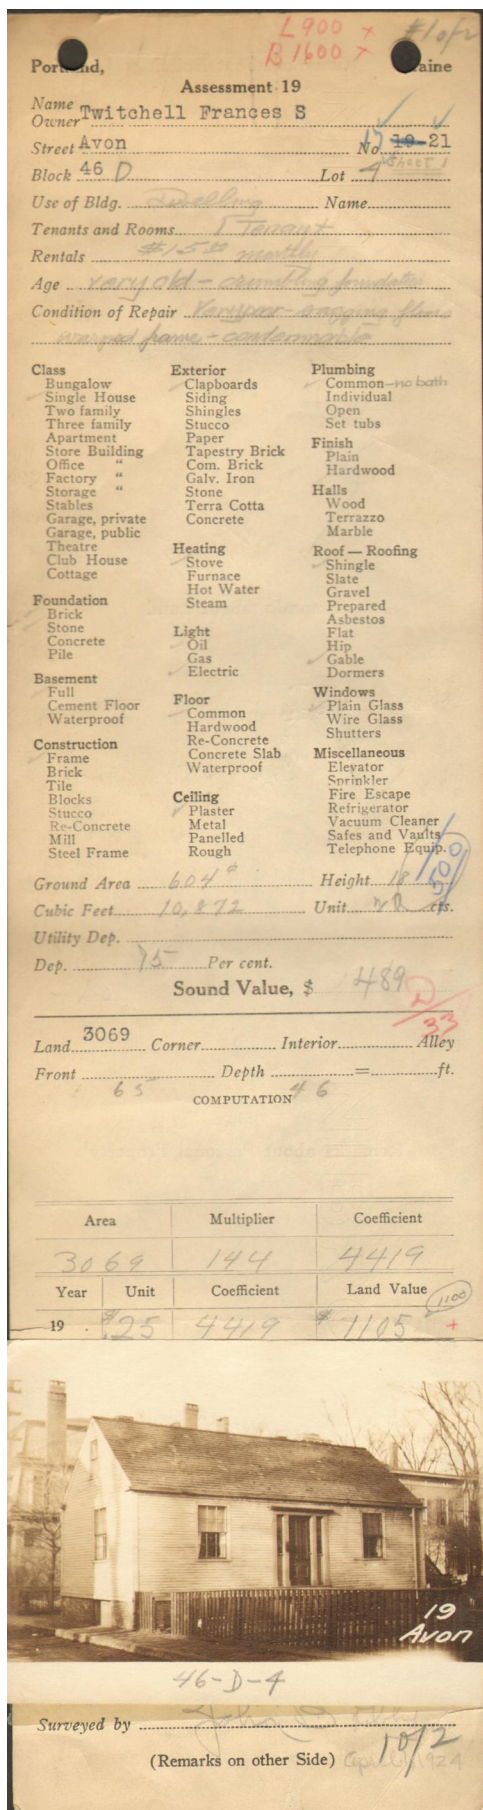 L900 x #1 of 2
B1600 x
Portland, Maine
Assessment 19
Name
Owner Twitchell Frances S
Street Avon No 17 19-21
Sheet 1
Block 46 D Lot 4
Use of Bldg. Dwelling Name
Tenants and Rooms 1 Tenant
Rentals $15.00 monthly
Age very old - crumbling foundation
Condition of Repair Very poor - sagging floors
warped frame - condemnable
Class
Bungalow
Single House
Two family
Three family
Apartment
Store Building
Office "
Factory "
Storage "
Stables
Garage, private
Garage, public
Theatre
Club House
Cottage
Foundation
Brick
Stone
Concrete
Pile
Basement
Full
Cement Floor
Waterproof
Construction
Frame
Brick
Tile
Blocks
Stucco
Re-Concrete
Mill
Steel Frame
Exterior
Clapboards
Siding
Shingles
Stucco
Paper
Tapestry Brick
Com. Brick
Galv. Iron
Stone
Terra Cotta
Concrete
Heating
Stove
Furnace
Hot Water
Steam
Light
Oil
Gas
Electric
Floor
Common
Hardwood
Re-Concrete
Concrete Slab
Waterproof
Ceiling
Plaster
Metal
Panelled
Rough
Plumbing
Common - no bath
Individual
Open
Set tubs
Finish
Plain
Hardwood
Halls
Wood
Terrazzo
Marble
Roof — Roofing
Shingle
Slate
Gravel
Prepared
Asbestos
Flat
Hip
Gable
Dormers
Windows
Plain Glass
Wire Glass
Shutters
Miscellaneous
Elevator
Sprinkler
Fire Escape
Refrigerator
Vacuum Cleaner
Safes and Vaults
Telephone Equip.
Ground Area 604 Height 18
Cubic Feet 10,872 Unit cts.
Utility Dep.
Dep. 75 Per cent.
Sound Value, $ 489
33
Land 3069 Corner Interior Alley
Front Depth = ft.
65 46
COMPUTATION
Area Multiplier Coefficient
3069 144 4419
Year Unit Coefficient Land Value 1100
19 $.25 4419 $1105 +
19
Avon
46-D-4
Surveyed by John
10/2
(Remarks on other Side) April 1924